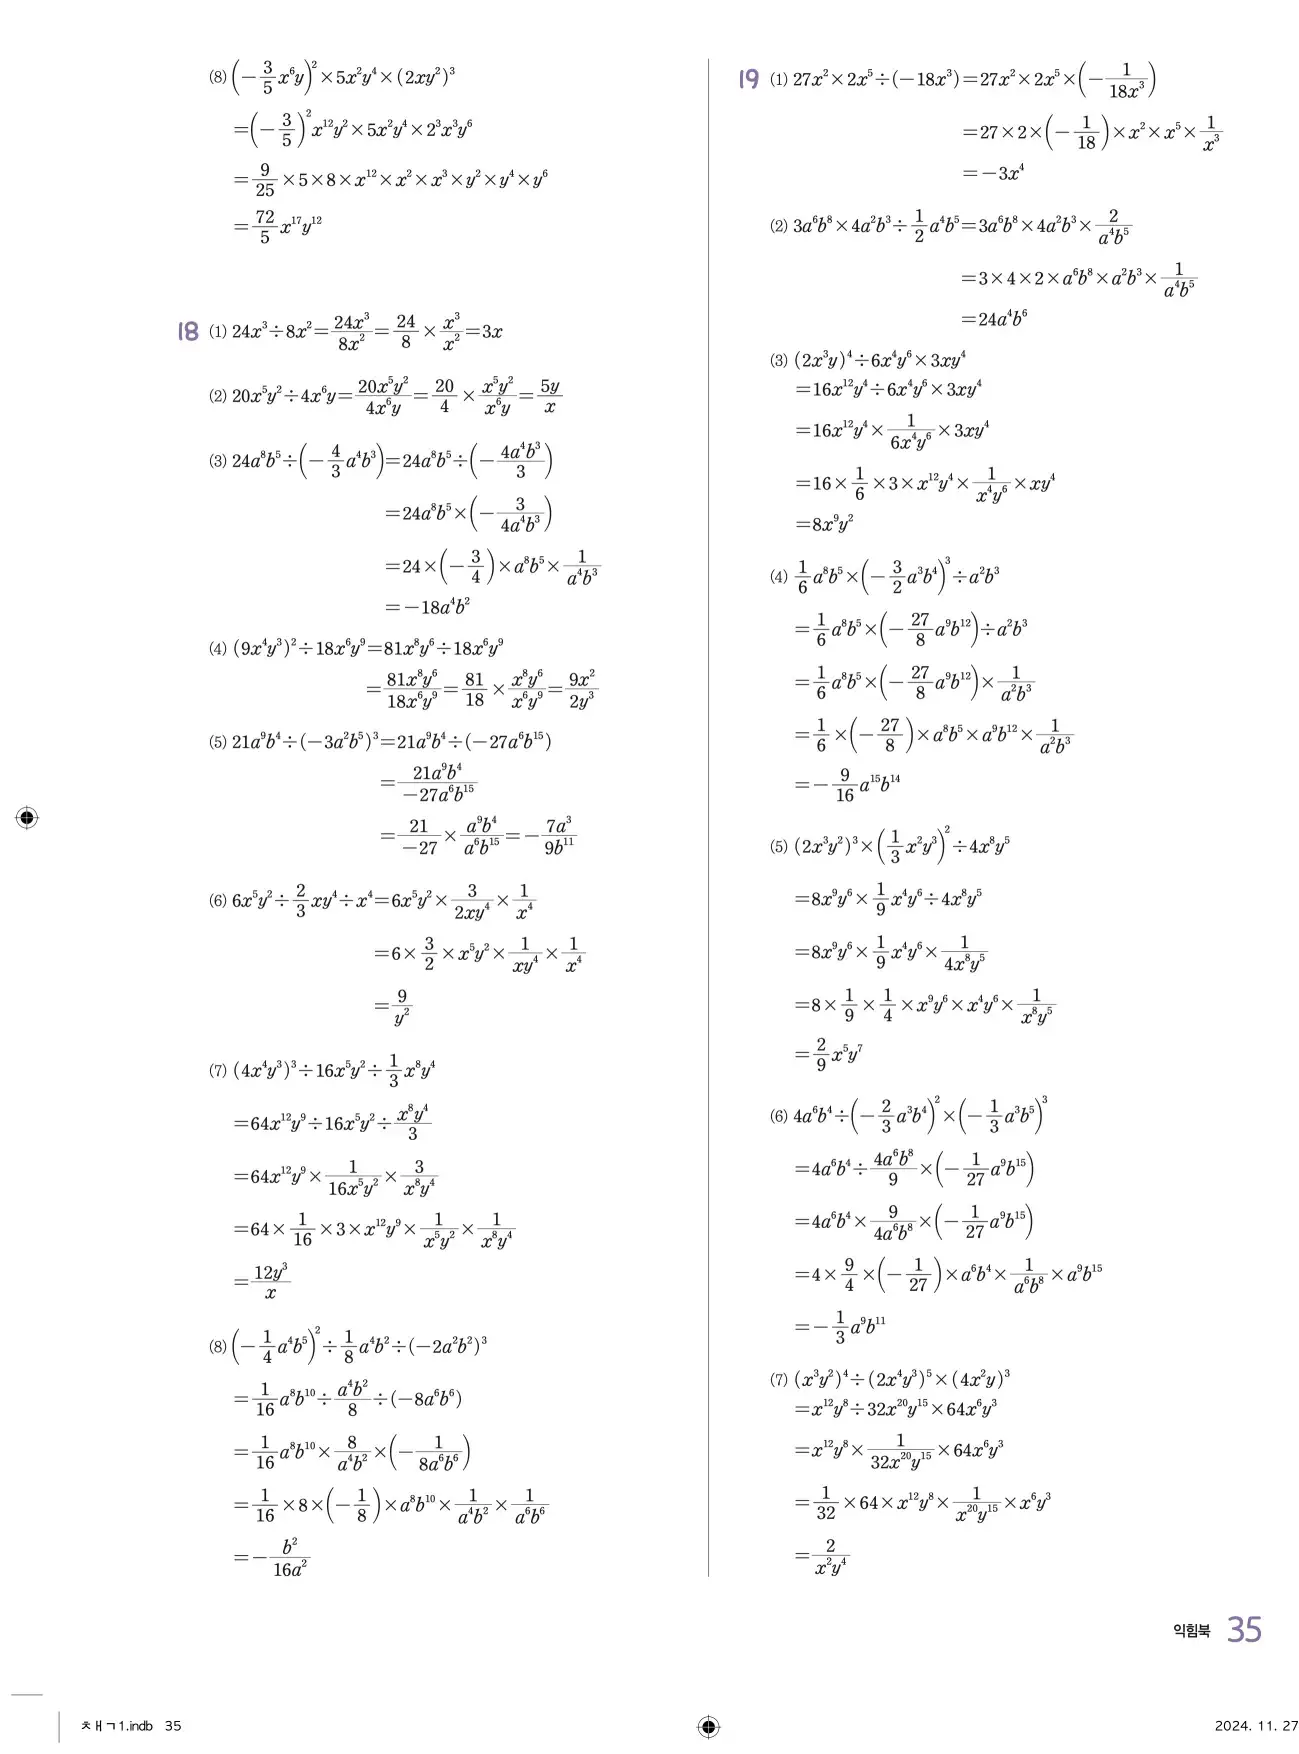 (8) (-3/5 x⁶y)²×5x²y⁴×(2xy²)³
=(-3/5)²x¹²y²×5x²y⁴×2³x³y⁶
=9/25×5×8×x¹²×x²×x³×y²×y⁴×y⁶
=72/5 x¹⁷y¹²
18 (1) 24x³÷8x²=24x³/8x²=24/8×x³/x²=3x
(2) 20x⁵y²÷4x⁶y=20x⁵y²/4x⁶y=20/4×x⁵y²/x⁶y=5y/x
(3) 24a⁸b⁵÷(-4/3 a⁴b³)=24a⁸b⁵÷(-4a⁴b³/3)
=24a⁸b⁵×(-3/4a⁴b³)
=24×(-3/4)×a⁸b⁵×1/a⁴b³
=-18a⁴b²
(4) (9x⁴y³)²÷18x⁶y⁹=81x⁸y⁶÷18x⁶y⁹
=81x⁸y⁶/18x⁶y⁹=81/18×x⁸y⁶/x⁶y⁹=9x²/2y³
(5) 21a⁹b⁴÷(-3a²b⁵)³=21a⁹b⁴÷(-27a⁶b¹⁵)
=21a⁹b⁴/-27a⁶b¹⁵
=21/-27×a⁹b⁴/a⁶b¹⁵=-7a³/9b¹¹
(6) 6x⁵y²÷2/3 xy⁴÷x⁴=6x⁵y²×3/2xy⁴×1/x⁴
=6×3/2×x⁵y²×1/xy⁴×1/x⁴
=9/y²
(7) (4x⁴y³)³÷16x⁵y²÷1/3 x⁸y⁴
=64x¹²y⁹÷16x⁵y²÷x⁸y⁴/3
=64x¹²y⁹×1/16x⁵y²×3/x⁸y⁴
=64×1/16×3×x¹²y⁹×1/x⁵y²×1/x⁸y⁴
=12y³/x
(8) (-1/4 a⁴b⁵)²÷1/8 a⁴b²÷(-2a²b²)³
=1/16 a⁸b¹⁰÷a⁴b²/8÷(-8a⁶b⁶)
=1/16 a⁸b¹⁰×8/a⁴b²×(-1/8a⁶b⁶)
=1/16×8×(-1/8)×a⁸b¹⁰×1/a⁴b²×1/a⁶b⁶
=-b²/16a²
19 (1) 27x²×2x⁵÷(-18x³)=27x²×2x⁵×(-1/18x³)
=27×2×(-1/18)×x²×x⁵×1/x³
=-3x⁴
(2) 3a⁶b⁸×4a²b³÷1/2 a⁴b⁵=3a⁶b⁸×4a²b³×2/a⁴b⁵
=3×4×2×a⁶b⁸×a²b³×1/a⁴b⁵
=24a⁴b⁶
(3) (2x³y)⁴÷6x⁴y⁶×3xy⁴
=16x¹²y⁴÷6x⁴y⁶×3xy⁴
=16x¹²y⁴×1/6x⁴y⁶×3xy⁴
=16×1/6×3×x¹²y⁴×1/x⁴y⁶×xy⁴
=8x⁹y²
(4) 1/6 a⁸b⁵×(-3/2 a³b⁴)³÷a²b³
=1/6 a⁸b⁵×(-27/8 a⁹b¹²)÷a²b³
=1/6 a⁸b⁵×(-27/8 a⁹b¹²)×1/a²b³
=1/6×(-27/8)×a⁸b⁵×a⁹b¹²×1/a²b³
=-9/16 a¹⁵b¹⁴
(5) (2x³y²)³×(1/3 x²y³)²÷4x⁸y⁵
=8x⁹y⁶×1/9 x⁴y⁶÷4x⁸y⁵
=8x⁹y⁶×1/9 x⁴y⁶×1/4x⁸y⁵
=8×1/9×1/4×x⁹y⁶×x⁴y⁶×1/x⁸y⁵
=2/9 x⁵y⁷
(6) 4a⁶b⁴÷(-2/3 a³b⁴)²×(-1/3 a³b⁵)³
=4a⁶b⁴÷4a⁶b⁸/9×(-1/27 a⁹b¹⁵)
=4a⁶b⁴×9/4a⁶b⁸×(-1/27 a⁹b¹⁵)
=4×9/4×(-1/27)×a⁶b⁴×1/a⁶b⁸×a⁹b¹⁵
=-1/3 a⁹b¹¹
(7) (x³y²)⁴÷(2x⁴y³)⁵×(4x²y)³
=x¹²y⁸÷32x²⁰y¹⁵×64x⁶y³
=x¹²y⁸×1/32x²⁰y¹⁵×64x⁶y³
=1/32×64×x¹²y⁸×1/x²⁰y¹⁵×x⁶y³
=2/x²y⁴
익힘북 35
ㅊㅐㄱ1.indb 35
2024. 11. 27